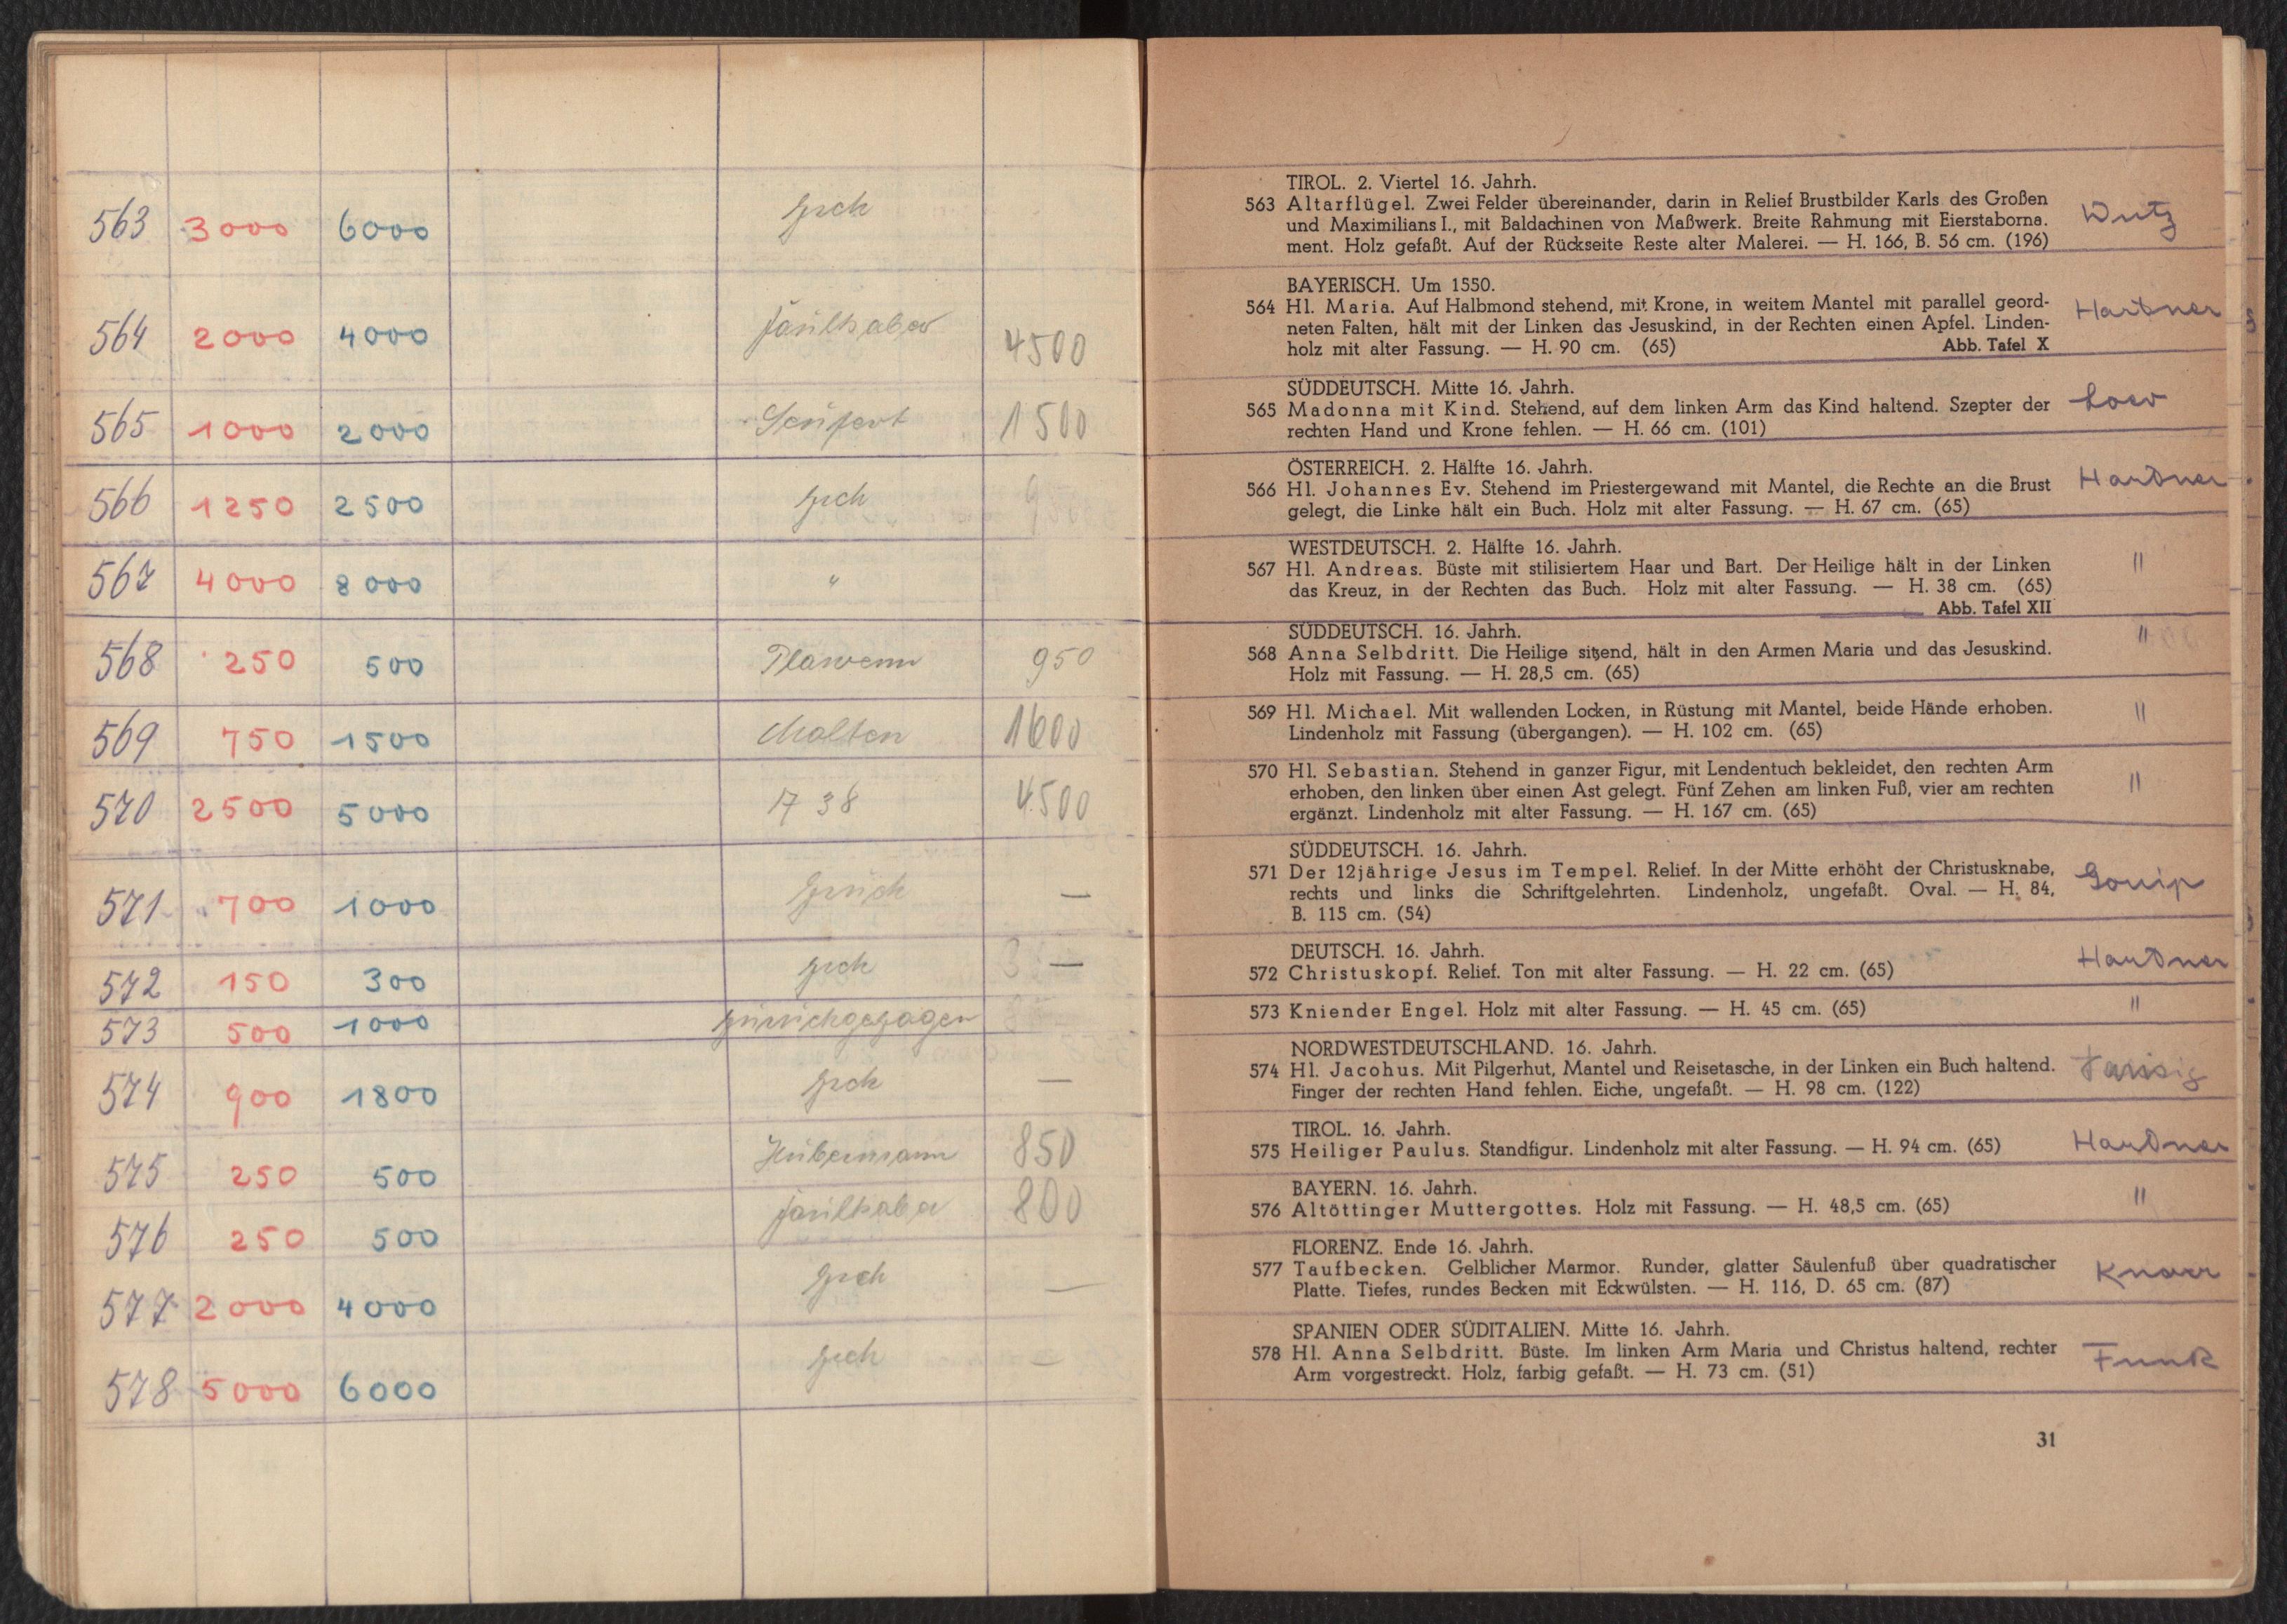 563 3000 6000 zrck
564 2000 4000 Faulhaber 4500
565 1000 2000 Seufert 1500
566 1250 2500 zrck 950
567 4000 8000 "
568 250 500 Plawenn 950
569 750 1500 Malten 1600
570 2500 5000 1738 4500
571 700 1000 zrück —
572 150 300 zrck —
573 500 1000 zurückgezogen
574 900 1800 zrck —
575 250 500 Hubermann 850
576 250 500 Faulhaber 800
577 2000 4000 zrck —
578 5000 6000 zrck —
TIROL. 2. Viertel 16. Jahrh.
563 Altarflügel. Zwei Felder übereinander, darin in Relief Brustbilder Karls des Großen
und Maximilians I., mit Baldachinen von Maßwerk. Breite Rahmung mit Eierstaborna-
ment. Holz gefaßt. Auf der Rückseite Reste alter Malerei. — H. 166, B. 56 cm. (196)
Wutz
BAYERISCH. Um 1550.
564 Hl. Maria. Auf Halbmond stehend, mit Krone, in weitem Mantel mit parallel geord-
neten Falten, hält mit der Linken das Jesuskind, in der Rechten einen Apfel. Linden-
holz mit alter Fassung. — H. 90 cm. (65) Abb. Tafel X
Hartner
SÜDDEUTSCH. Mitte 16. Jahrh.
565 Madonna mit Kind. Stehend, auf dem linken Arm das Kind haltend. Szepter der
rechten Hand und Krone fehlen. — H. 66 cm. (101)
Loew
ÖSTERREICH. 2. Hälfte 16. Jahrh.
566 Hl. Johannes Ev. Stehend im Priestergewand mit Mantel, die Rechte an die Brust
gelegt, die Linke hält ein Buch. Holz mit alter Fassung. — H. 67 cm. (65)
Hartner
WESTDEUTSCH. 2. Hälfte 16. Jahrh.
567 Hl. Andreas. Büste mit stilisiertem Haar und Bart. Der Heilige hält in der Linken
das Kreuz, in der Rechten das Buch. Holz mit alter Fassung. — H. 38 cm. (65)
Abb. Tafel XII
"
SÜDDEUTSCH. 16. Jahrh.
568 Anna Selbdritt. Die Heilige sitzend, hält in den Armen Maria und das Jesuskind.
Holz mit Fassung. — H. 28,5 cm. (65)
"
569 Hl. Michael. Mit wallenden Locken, in Rüstung mit Mantel, beide Hände erhoben.
Lindenholz mit Fassung (übergangen). — H. 102 cm. (65)
"
570 Hl. Sebastian. Stehend in ganzer Figur, mit Lendentuch bekleidet, den rechten Arm
erhoben, den linken über einen Ast gelegt. Fünf Zehen am linken Fuß, vier am rechten
ergänzt. Lindenholz mit alter Fassung. — H. 167 cm. (65)
"
SÜDDEUTSCH. 16. Jahrh.
571 Der 12jährige Jesus im Tempel. Relief. In der Mitte erhöht der Christusknabe,
rechts und links die Schriftgelehrten. Lindenholz, ungefaßt. Oval. — H. 84,
B. 115 cm. (54)
DEUTSCH. 16. Jahrh.
572 Christuskopf. Relief. Ton mit alter Fassung. — H. 22 cm. (65)
Hartner
573 Kniender Engel. Holz mit alter Fassung. — H. 45 cm. (65)
"
NORDWESTDEUTSCHLAND. 16. Jahrh.
574 Hl. Jacohus. Mit Pilgerhut, Mantel und Reisetasche, in der Linken ein Buch haltend.
Finger der rechten Hand fehlen. Eiche, ungefaßt. — H. 98 cm. (122)
TIROL. 16. Jahrh.
575 Heiliger Paulus. Standfigur. Lindenholz mit alter Fassung. — H. 94 cm. (65)
Hartner
BAYERN. 16. Jahrh.
576 Altöttinger Muttergottes. Holz mit Fassung. — H. 48,5 cm. (65)
"
FLORENZ. Ende 16. Jahrh.
577 Taufbecken. Gelblicher Marmor. Runder, glatter Säulenfuß über quadratischer
Platte. Tiefes, rundes Becken mit Eckwülsten. — H. 116, D. 65 cm. (87)
Knorr
SPANIEN ODER SÜDITALIEN. Mitte 16. Jahrh.
578 Hl. Anna Selbdritt. Büste. Im linken Arm Maria und Christus haltend, rechter
Arm vorgestreckt. Holz, farbig gefaßt. — H. 73 cm. (51)
Funk
31